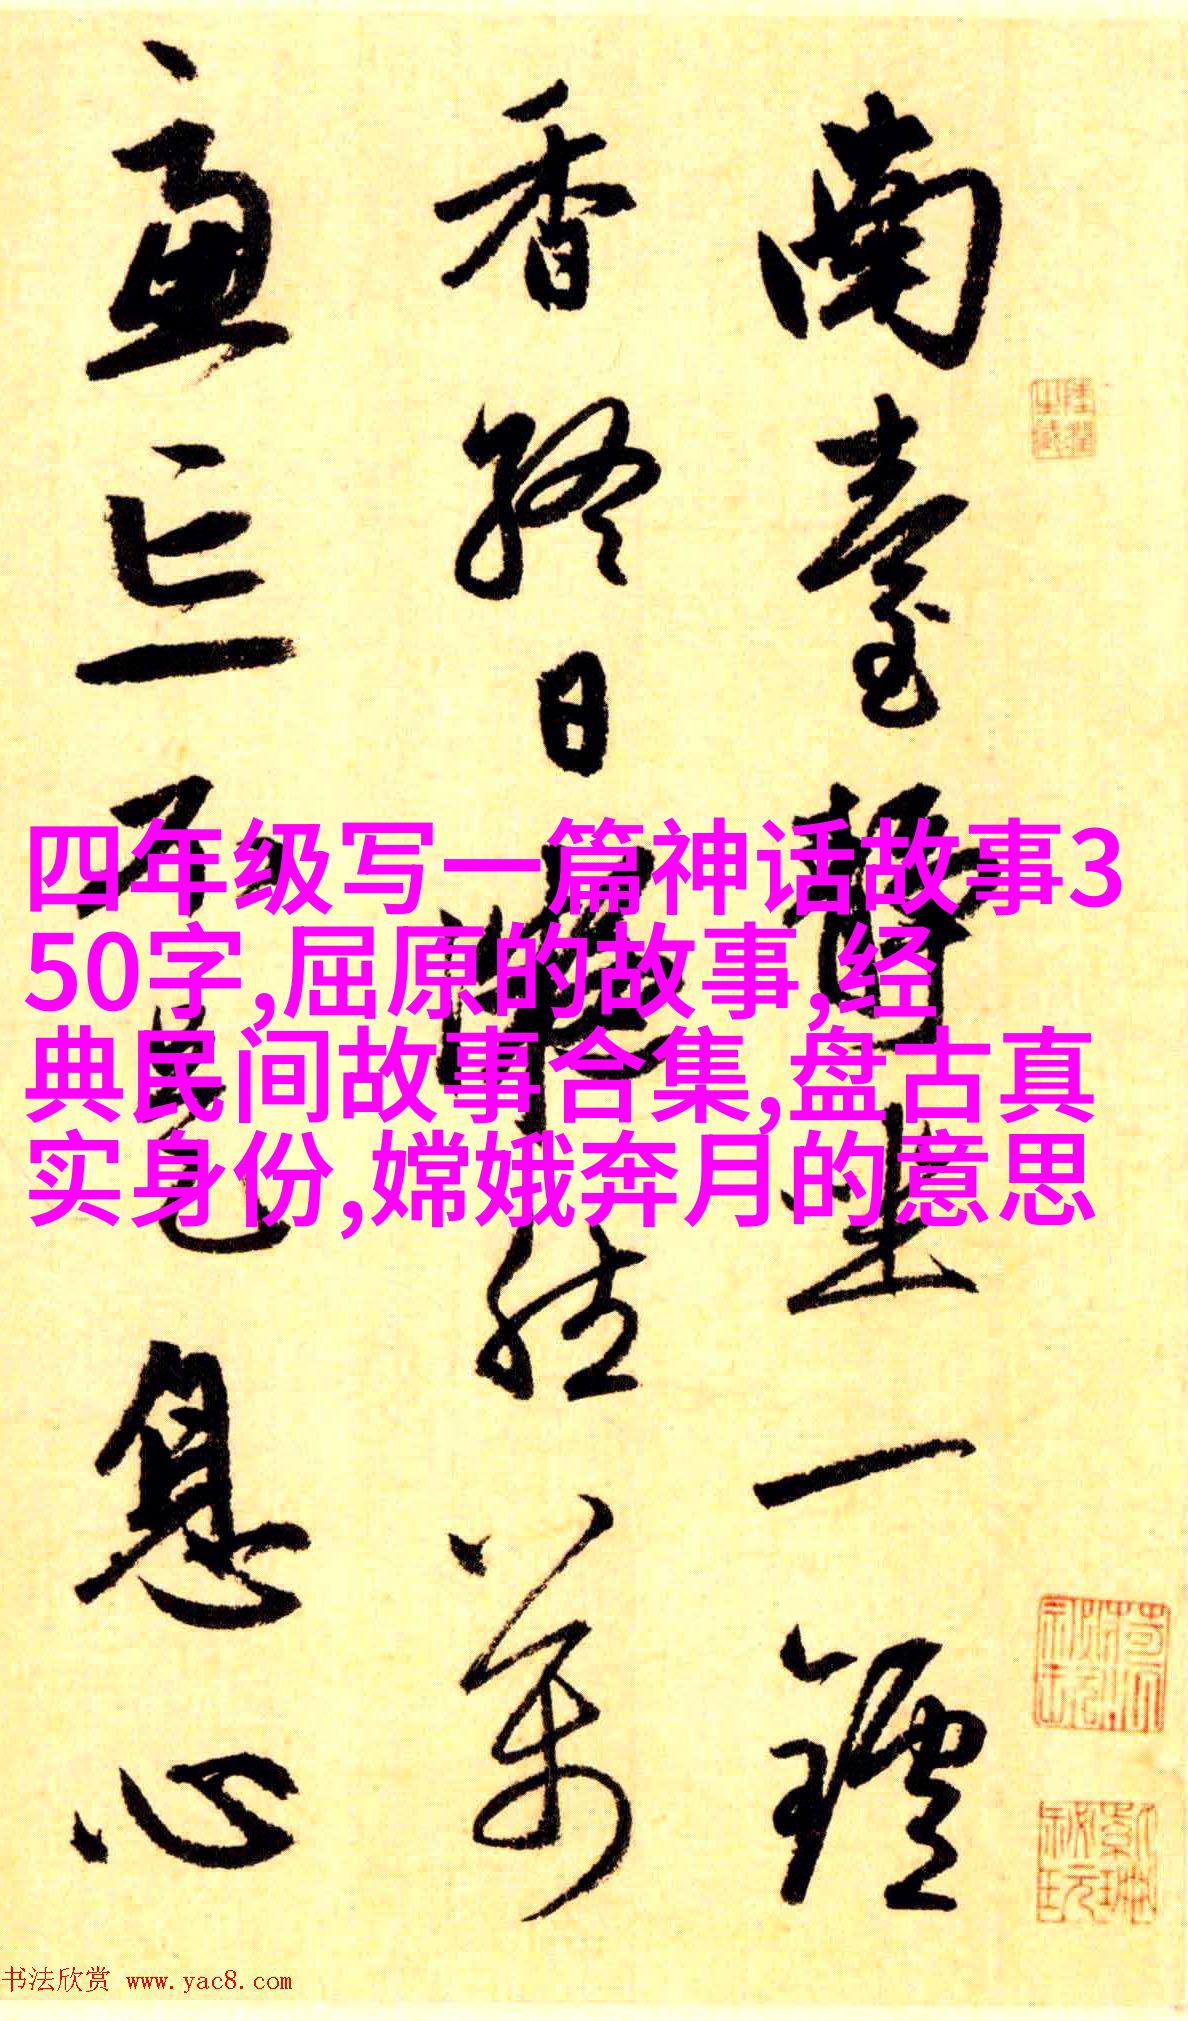 南臺靜坐一鑪
香終日凝然萬
慮忘不是息心
四年级写一篇神话故事3
50字,屈原的故事,经
典民间故事合集,盘古真
实身份,嫦娥奔月的意思
书法欣赏 www.yac8.com